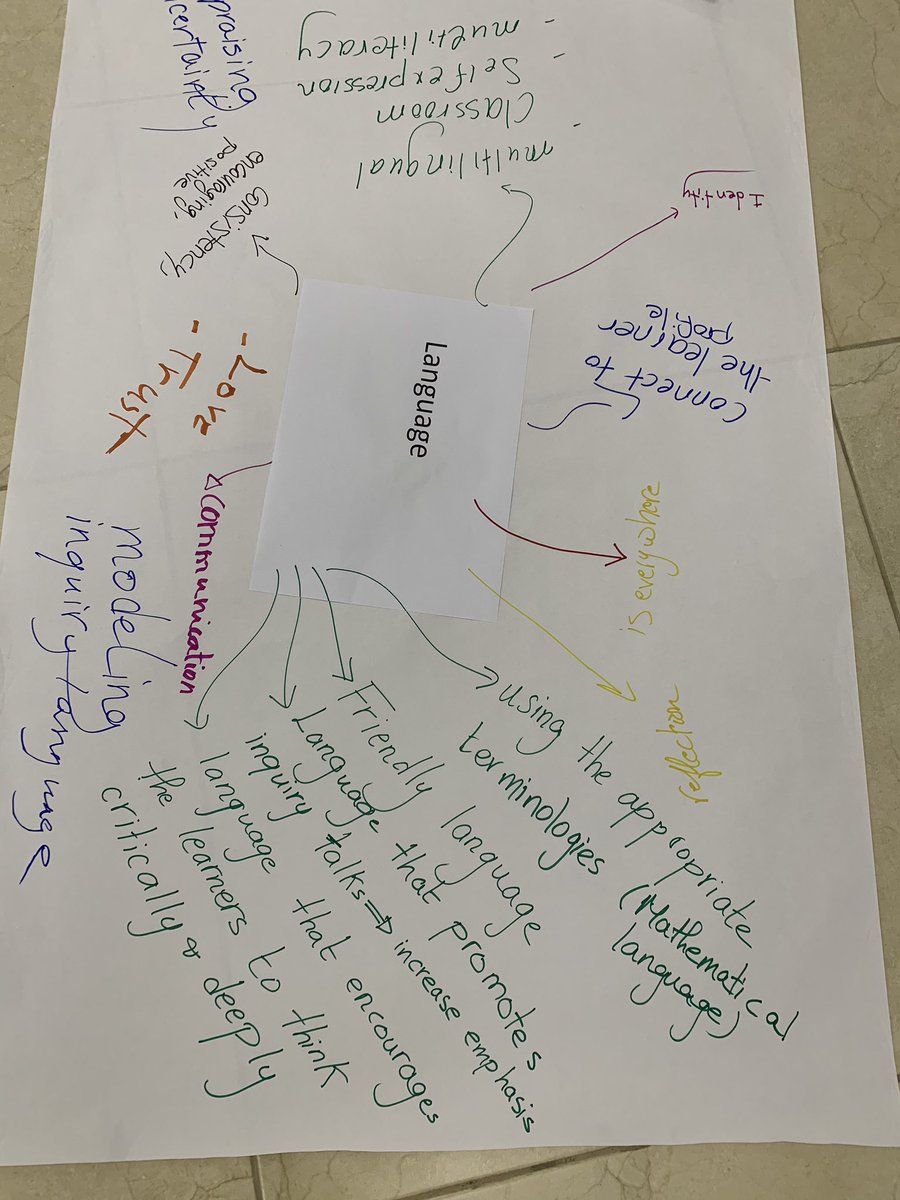 Language
- multilingual
Classroom
- Self expression
- multiliteracy
Identity
Connect to
the learner
profile
is everywhere
reflection
using the appropriate
terminologies (Mathematical
language)
Friendly language
Language that promotes
inquiry talks ⇒ increase emphasis
language that encourages
the learners to think
critically & deeply
communication
modeling
inquiry language
- Love
- Trust
Consistency,
encouraging,
positive
praising
certainty